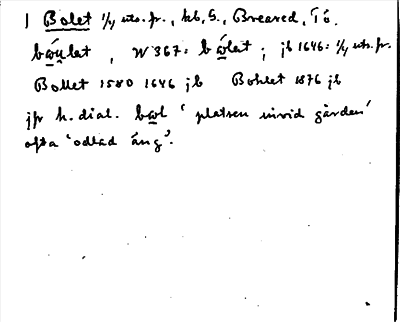 1 Bolet 1/4 uts. fr., kb, S., Breared, Tö.
bωu̯lat, W 367: bωlat; jb 1646: 1/4 uts. fr.
Bollet 1580 1646 jb Bohlet 1876 jb
jfr h. dial. bωl 'platsen invid gården'
ofta 'odlad äng'.